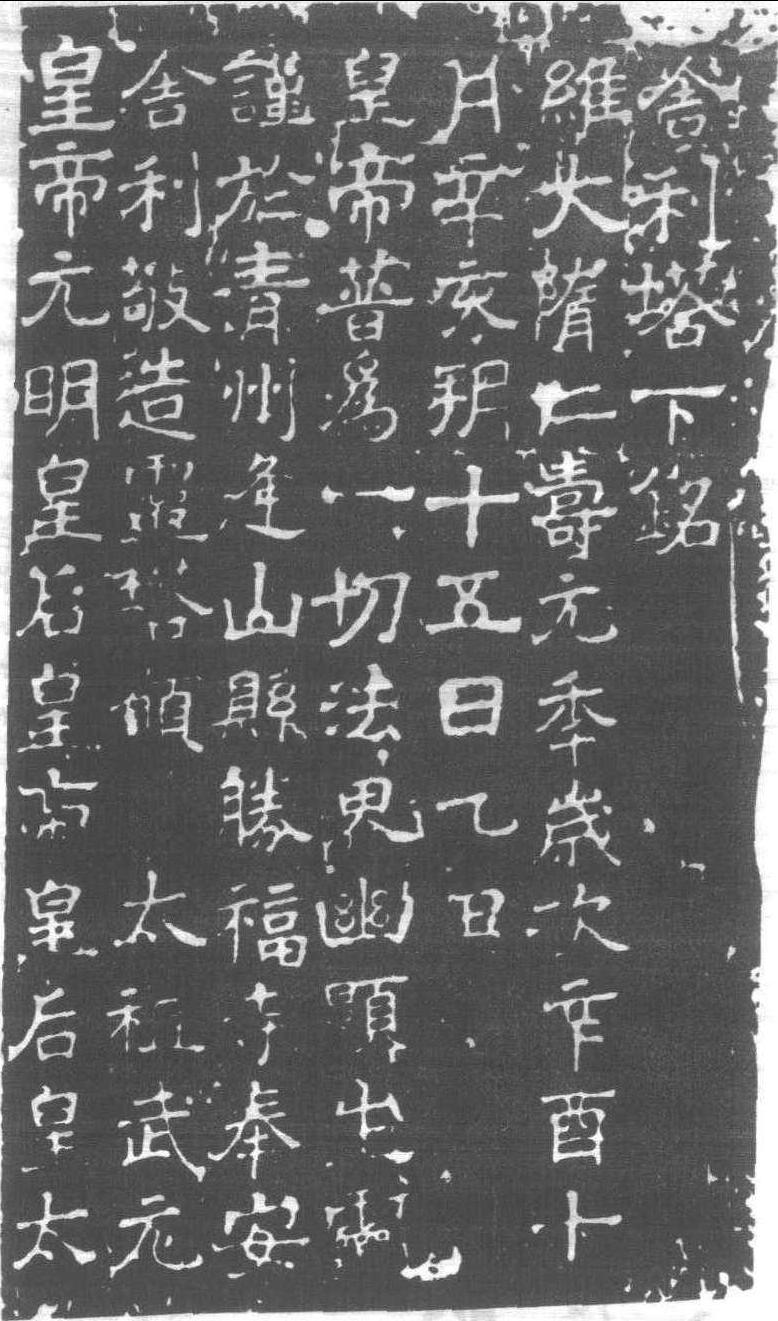 舍利塔下銘
維大隋仁壽元季歲次辛酉十
月辛亥朔十五日乙丑
皇帝普為一切法界幽顯生靈
謹於青州逄山縣勝福寺奉安
舍利敬造靈塔願太祖武元
皇帝元明皇后皇帝皇后皇太